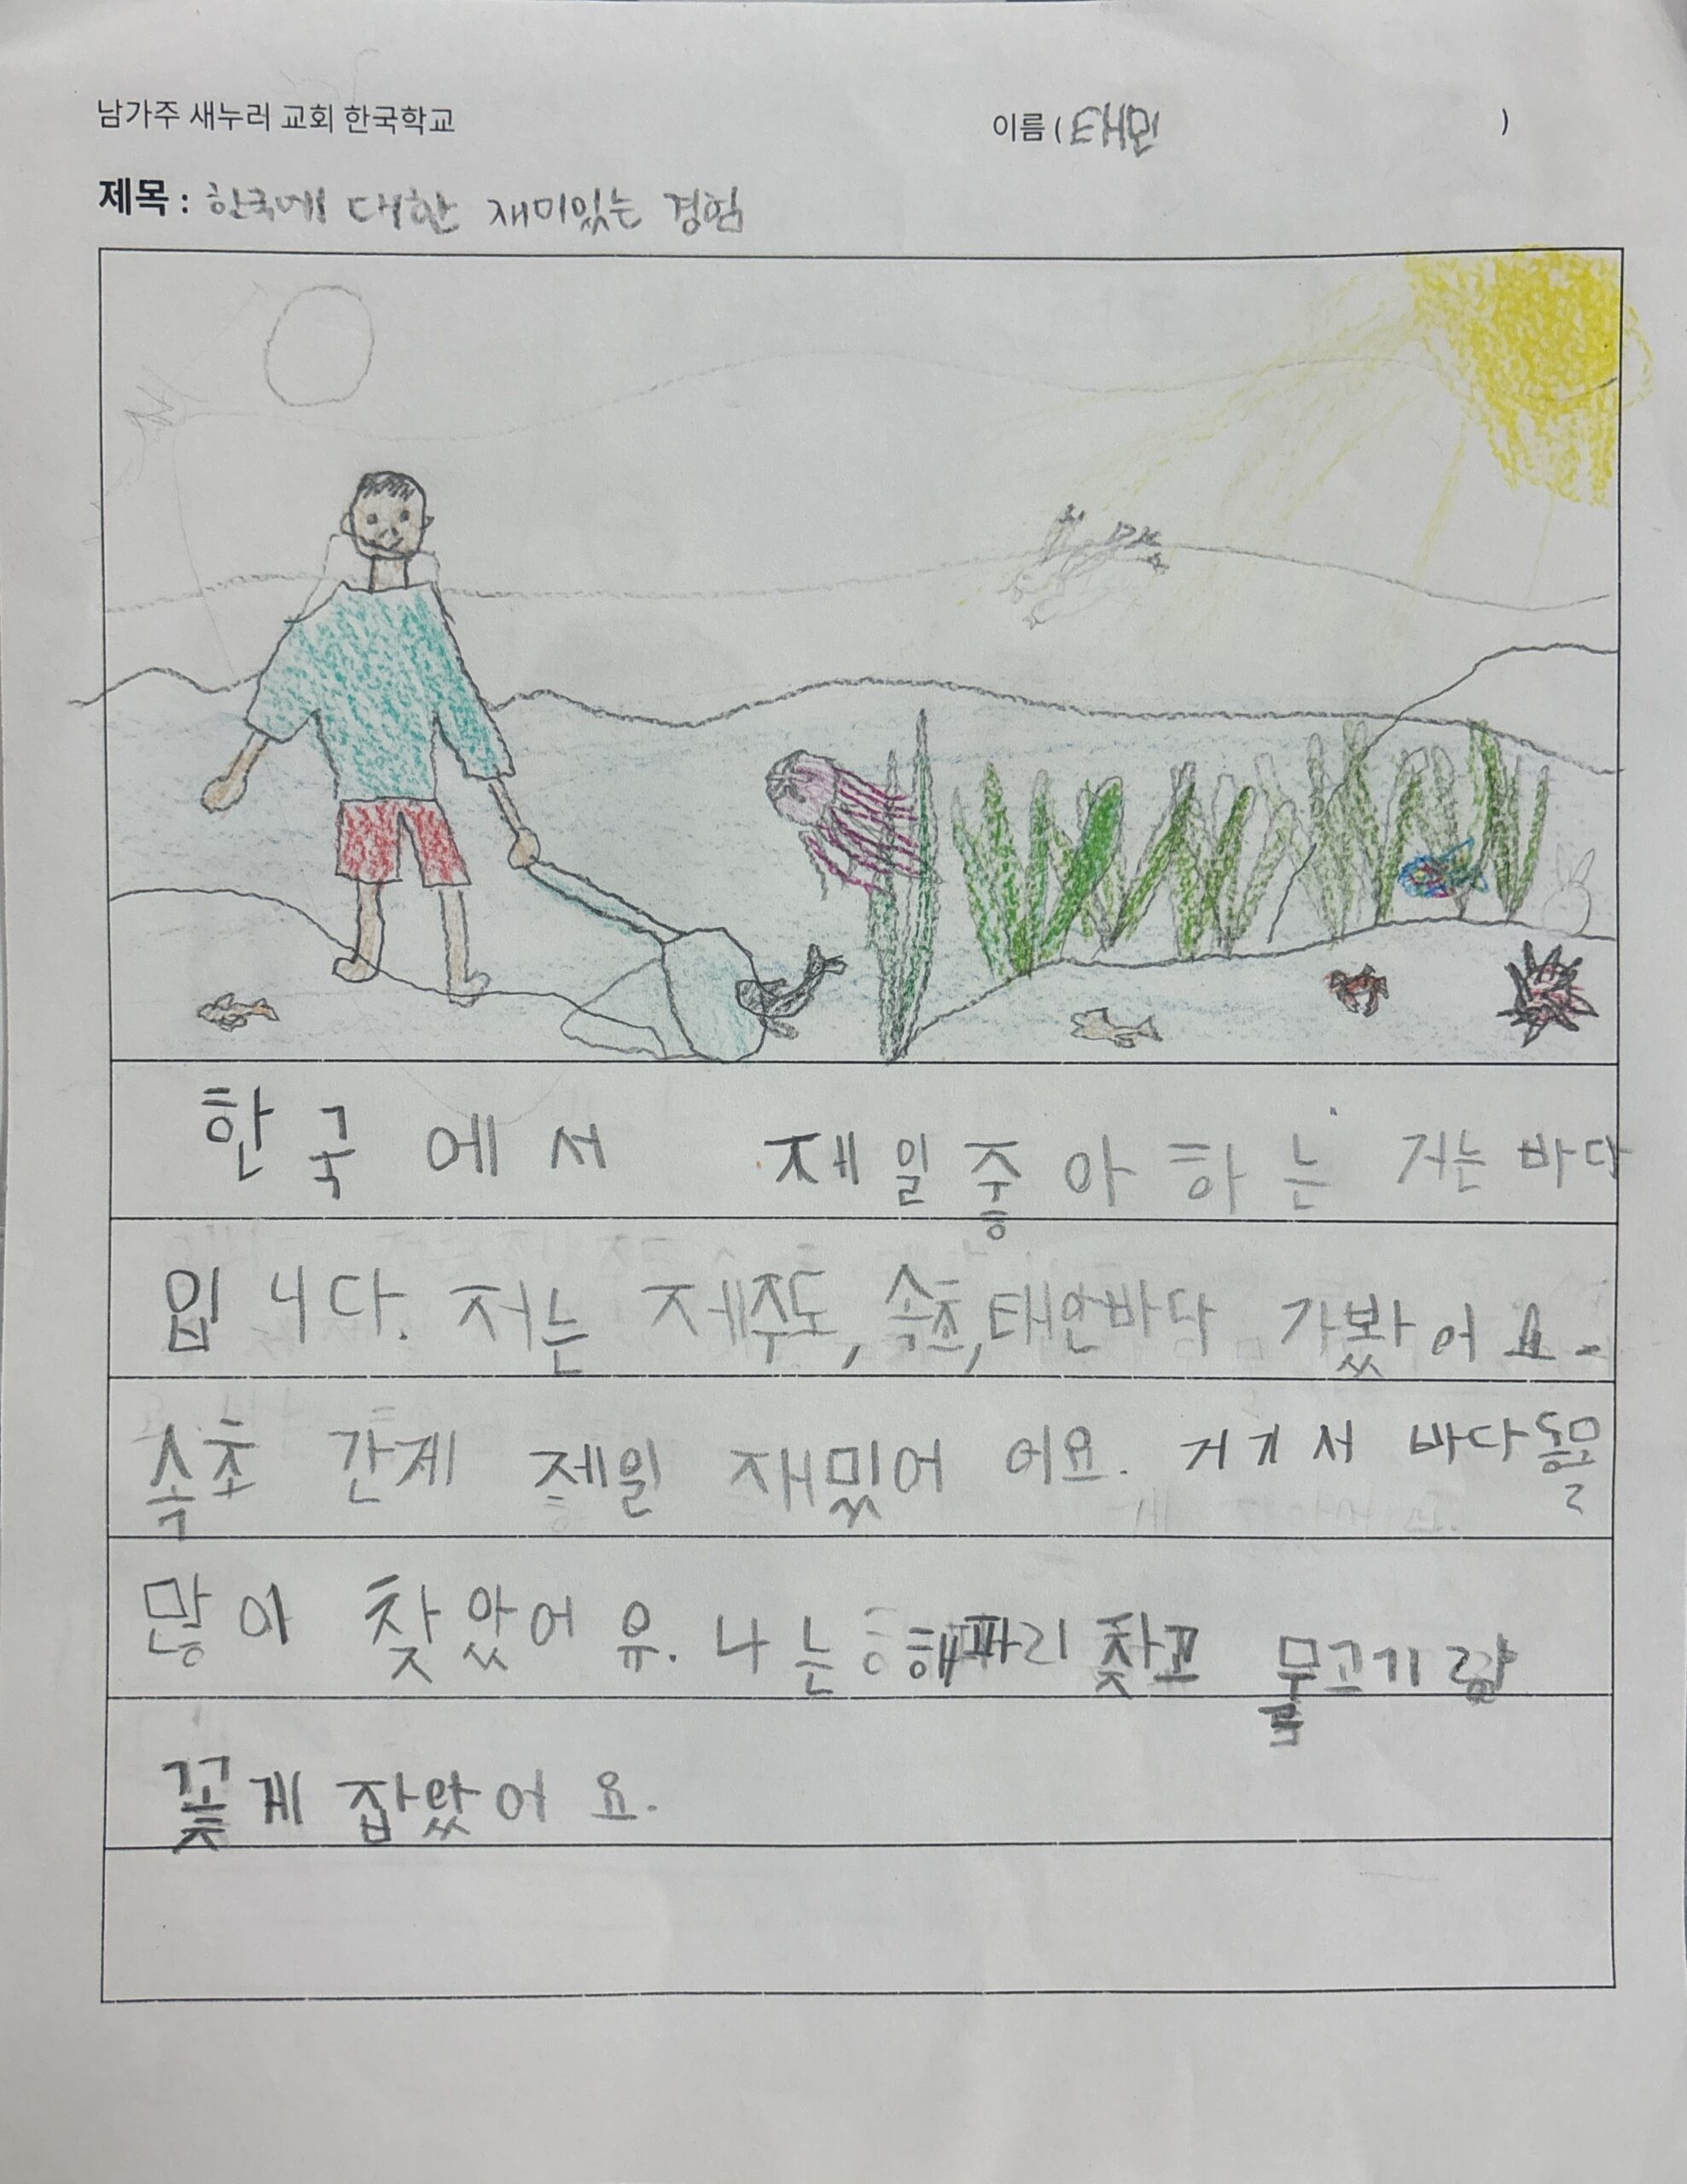 남가주 새누리 교회 한국학교 이름 (태민 )
제목 : 한국에 대한 재미있는 경험
한국에서 재일좋아하는 거는 바다
입니다. 저는 제주도, 속초, 태안바다 가봤어요.
속초 간게 제일 재밌어 어요. 거기서 바다동물
많이 찾았어유. 나는 해파리 찾고 물고기랑
꽃게 잡았어요.